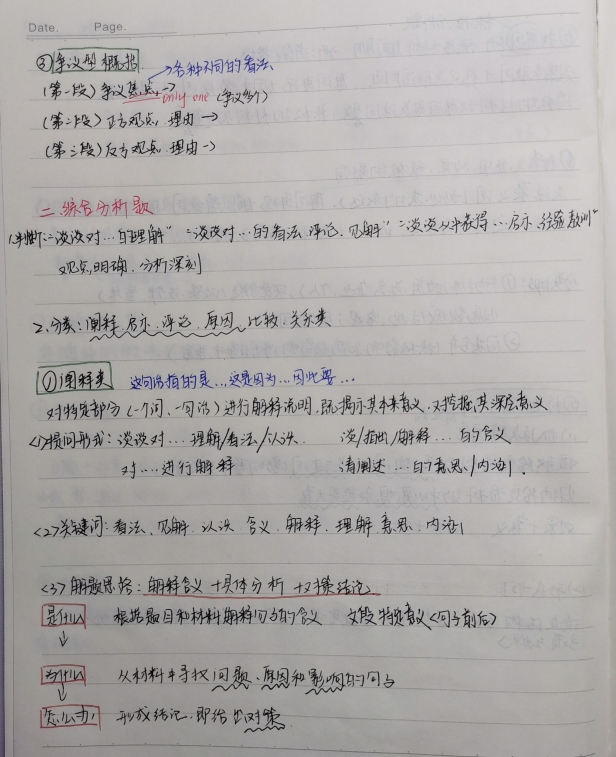 Date.      Page.
③争议型概括
→各种不同的看法
(第一段) 争议焦点→
only one (争议多个)
(第二段) 正方观点 理由→
(第三段) 反方观点 理由→
二.综合分析题
1.判断:"谈谈对…的理解" "谈谈对…的看法、评论、见解" "谈谈从中获得…启示、经验教训"
观点明确、分析深刻
2.分类:阐释、启示、评论、原因、比较、关系类
①阐释类 这句话指的是…这是因为…因此要…
对特定部分(一个词、一句话)进行解释说明,既揭示其本来意义,又挖掘其深层意义
<1>提问形式:谈谈对…理解/看法/认识. 谈/指出/解释…的含义
对…进行解释 请阐述…的意思/内涵.
<2>关键词:看法、见解、认识、含义、解释、理解、意思、内涵
<3>解题思路:解释含义+具体分析+对策结论
是什么 根据题目和材料解释句子的含义 文段特定意义<句子前后>
↓
为什么 从材料中寻找问题、原因和影响的句子
↓
怎么办 形成结论,即给出对策